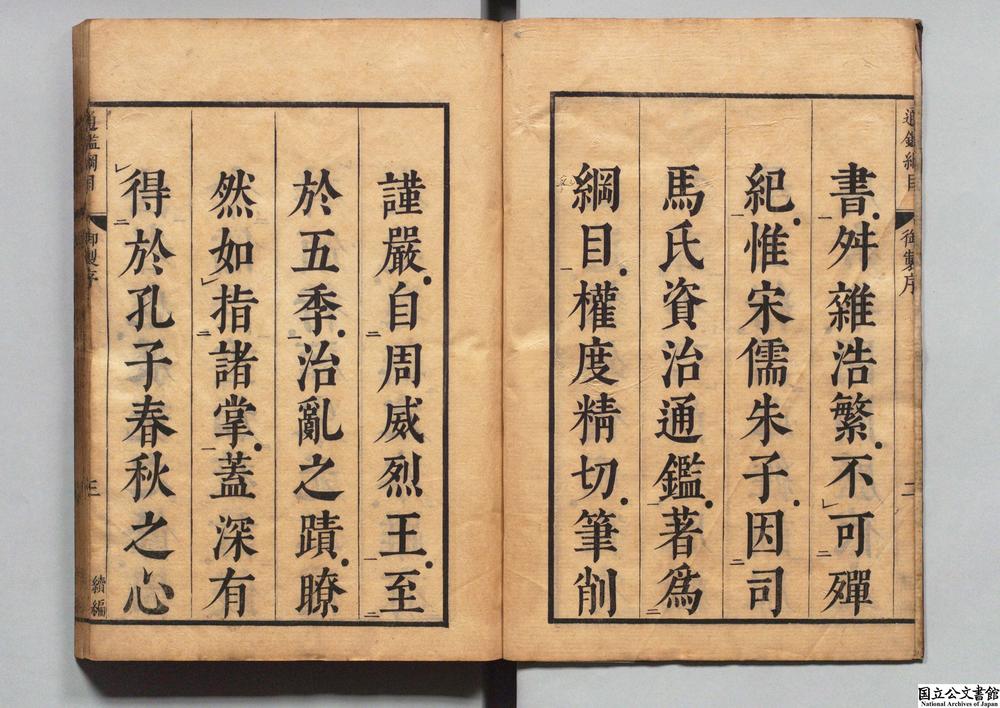 通鑑綱目 御製序 二
書舛雜浩繁不可殫
紀惟宋儒朱子因司
馬氏資治通鑑著爲
綱目權度精切筆削
謹嚴自周威烈王至
於五季治亂之蹟瞭
然如指諸掌蓋深有
得於孔子春秋之心
通鑑綱目 御製序 三 續編
国立公文書館
National Archives of Japan